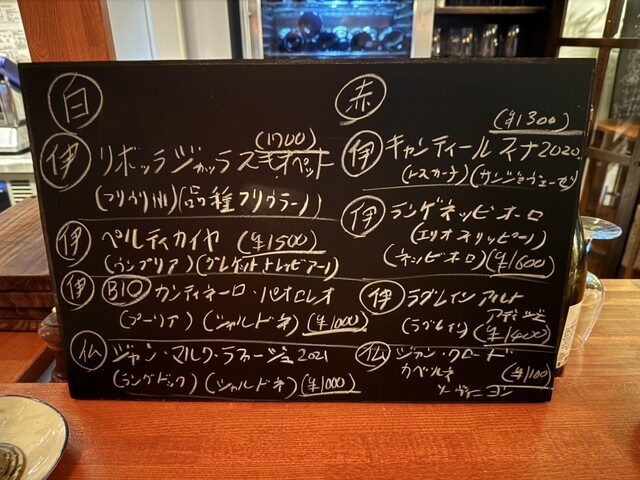 白
(1700)
伊 リボッラジャッラ スキオペット
(フリウリ州)(品種フリウラーノ)
伊 ペルティカイヤ (¥1500)
(ウンブリア)(グレケット,トレッビアーノ)
伊 BIO カンティネーロ・パオロレオ
(プーリア)(シャルドネ)(¥1000)
仏 ジャン・マルク・ラファージュ2021
(ラングドック)(シャルドネ)(¥1000)
赤
(¥1300)
伊 キャンティールスィナ2020
(トスカーナ)(サンジョヴェーゼ)
伊 ランゲネッビオーロ
(エリオフィリッピーノ)
(ネッビオーロ)(¥1600)
伊 ラグレイン アルト
アディジェ
(ラグレイン)(¥1400)
仏 ジャン・クロード
カベルネ (¥1100)
ソーヴィニヨン